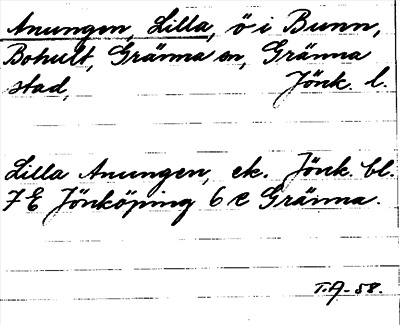 Anungen, Lilla, ö i Bunn,
Bohult, Gränna sn, Gränna
stad, Jönk. l.
Lilla Anungen, ek. Jönk. bl.
7E Jönköping 6 e Gränna.
T.A-58.